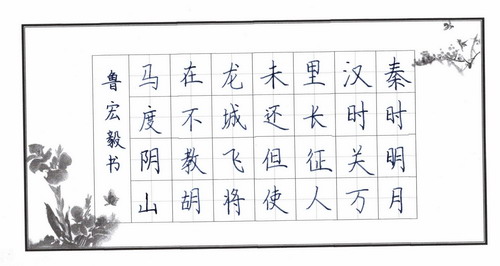 秦时明月
汉时关万
里长征人
未还但使
龙城飞将
在不教胡
马度阴山
鲁宏毅书